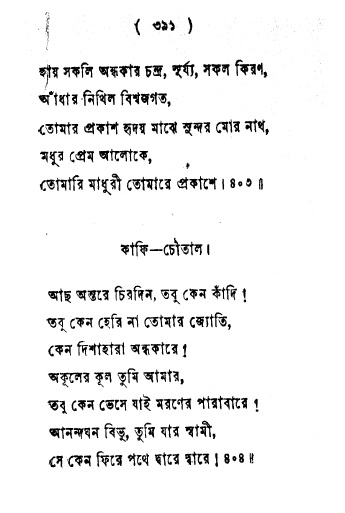 ( ৩৯১ )
হায় সকলি অন্ধকার চন্দ্র, সূর্য্য, সকল কিরণ,
আঁধার নিখিল বিশ্বজগত,
তোমার প্রকাশ হৃদয় মাঝে সুন্দর মোর নাথ,
মধুর প্রেম আলোকে,
তোমারি মাধুরী তোমারে প্রকাশে। ৪০৩॥
কাফি—চৌতাল।
আছ অন্তরে চিরদিন, তবু কেন কাঁদি!
তবু কেন হেরি না তোমার জ্যোতি,
কেন দিশাহারা অন্ধকারে!
অকূলের কূল তুমি আমার,
তবু কেন ভেসে যাই মরণের পারাবারে!
আনন্দঘন বিভু, তুমি যার স্বামী,
সে কেন ফিরে পথে দ্বারে দ্বারে! ৪০৪॥